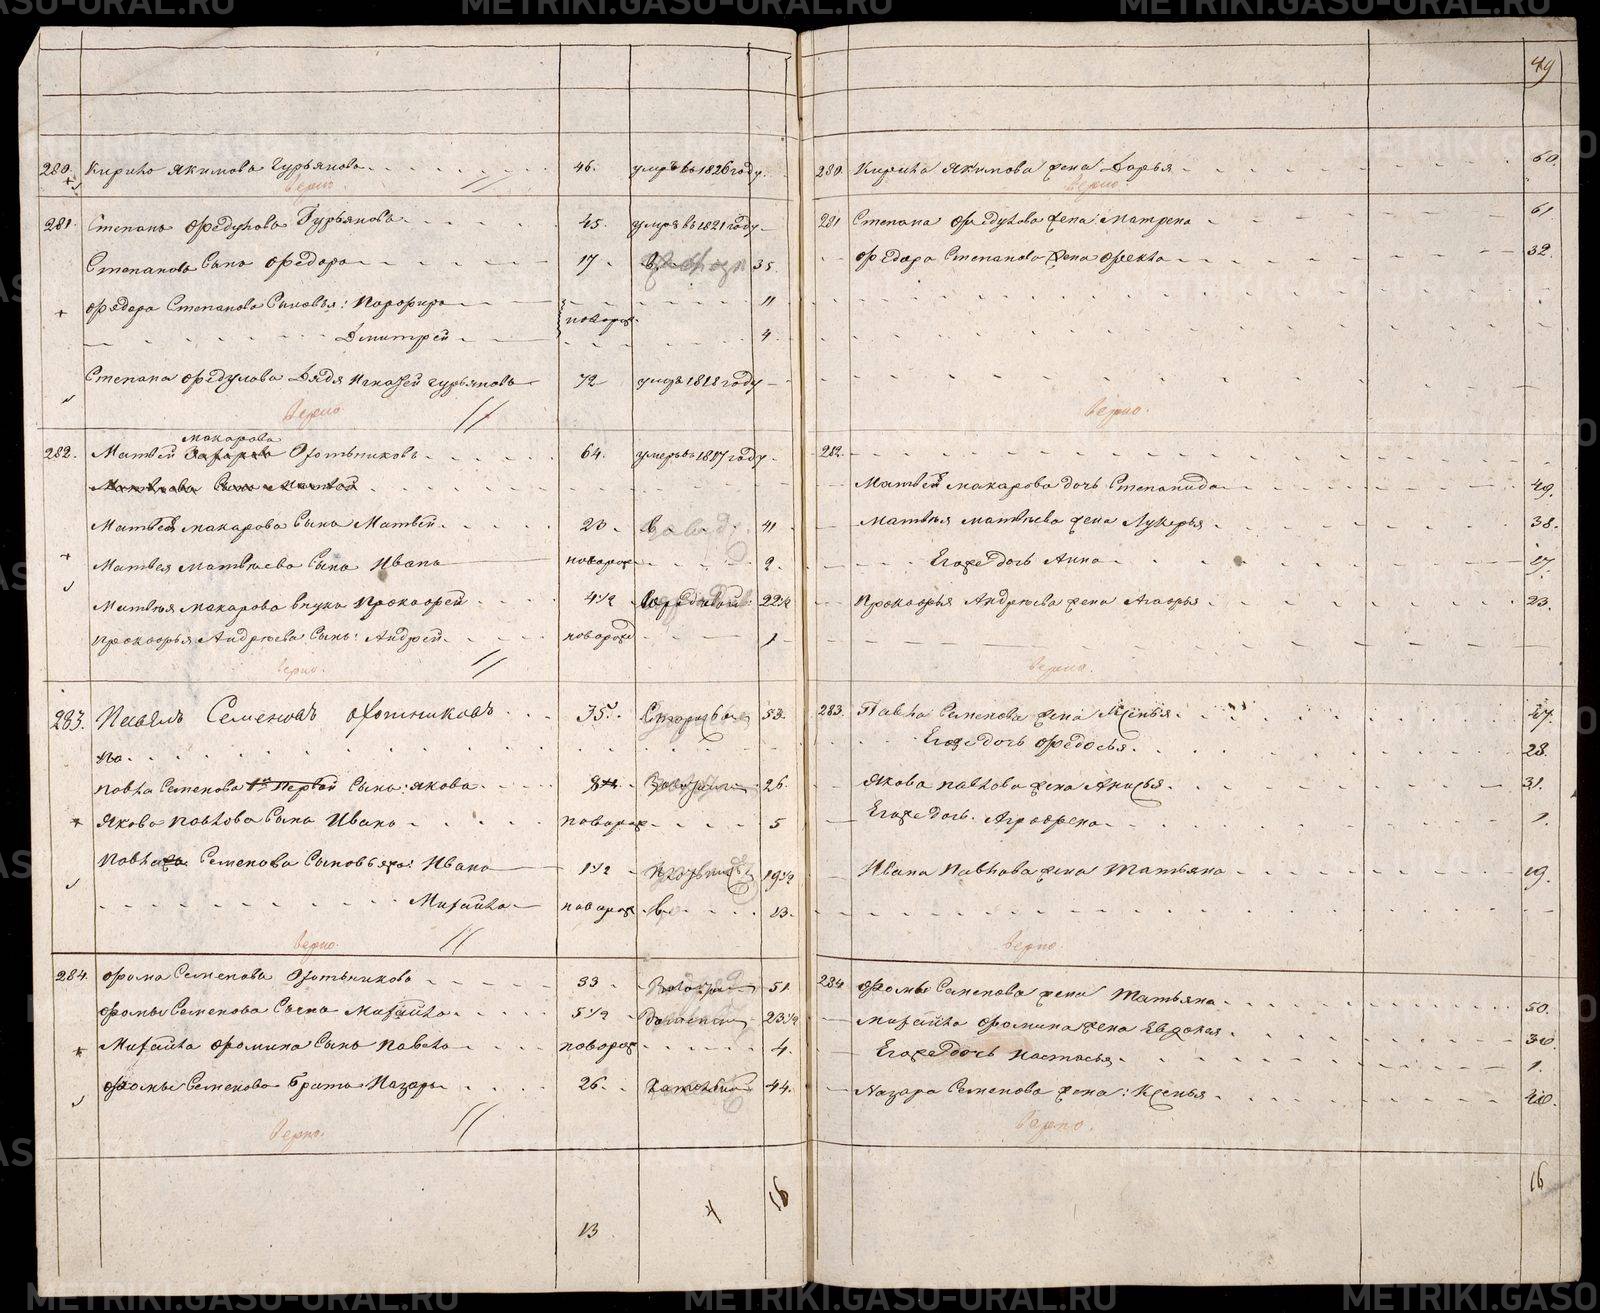 49
280. Кирило Якимовъ Гурьяновъ 46. умръ въ 1826 году.
Верно.
281. Степанъ Федуловъ Гурьяновъ 45. умре въ 1821 году
Степановъ Сынъ Федоръ 17 35.
Федора Степанова Сыновья: Порфиръ 11
новорож.
Дмитрей 4.
Степана Федулова Дядя Гурьяновъ 72 умръ 1818 году
Верно.
282. Матвей Макаровъ Охотниковъ 64. умеръ въ 1817 году.
Матвея Макарова Сынъ Матвей 20 41
Матвея Матвеева Сынъ Иванъ новорож 2.
Матвея Макарова внукъ Прокофей 4½ 22½
Прокофья Андреева Сынъ: Андрей новорожд 1
Верно.
283. Павелъ Семеновъ Охотниковъ 35. 53.
Павла Семенова Сынъ Яковъ 8 26.
Якова Павлова Сынъ Иванъ новорож 5
Павла Семенова Сыновья: Иванъ 1½ 19½
Михайло новорож 13.
Верно.
284. Фома Семеновъ Охотниковъ 33 51.
Фомы Семенова Сынъ Михайло 5½ 23½
Михайла Фомина Сынъ Павелъ новорож 4.
Фомы Семенова Братъ Назаръ 26. 44.
Верно.
13 4 16
280. Кирила Якимова жена Дарья 60.
Верно
281 Степана Федулова жена Матрена 61
Федора Степанова жена Фекла 32.
Верно.
282.
Матвея Макарова дочь Степанида 49.
Матвея Матвеева жена Лукерья 38.
Егоже дочь Анна 17.
Прокофья Андреева жена Агафья 23.
Верно.
283. Павла Семенова жена Ксенья 47.
Егоже дочь Федосья 28.
Якова Павлова жена Анисья 31.
Егоже дочь Аграфена 1.
Ивана Павлова жена Татьяна 19.
Верно.
284 Фомы Семенова жена Татьяна 50.
Михайла Фомина жена Евдокея 30.
Егоже дочь Настасья 1.
Назара Семенова жена: Ксенья 40.
Верно.
16
METRIKI.GASO-URAL.RU